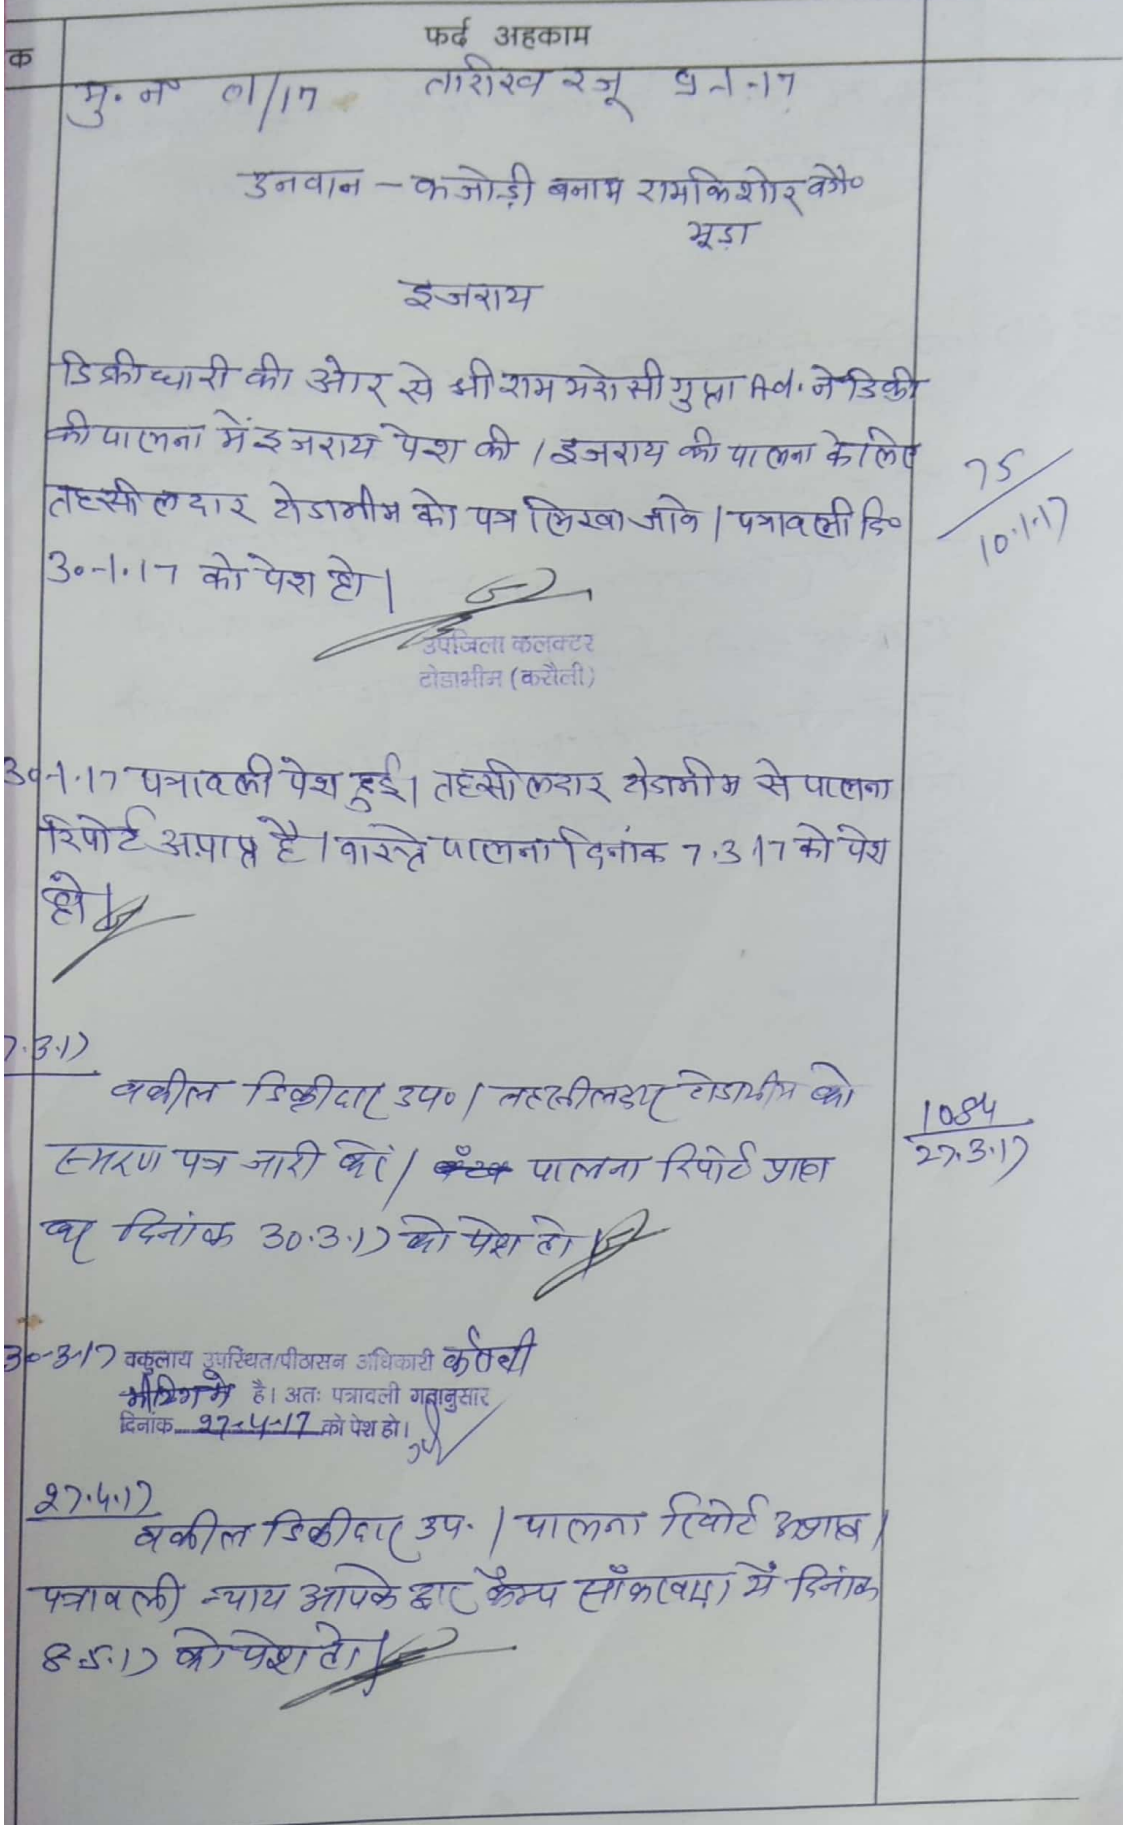 फर्द अहकाम
क
मु. न० 01/17 तारीख रजू 9-1-17
उनवान - कजोड़ी बनाम रामकिशोर वगै०
मूड़ा
इजराय
डिक्रीधारी की ओर से श्री राम भरोसी गुप्ता Ad. ने डिक्री
की पालना में इजराय पेश की । इजराय की पालना के लिए
तहसीलदार टोडाभीम को पत्र लिखा जावे । पत्रावली दि०
30-1-17 को पेश हो ।
75
10.1.17
उपजिला कलक्टर
टोडाभीम (करौली)
30-1-17 पत्रावली पेश हुई। तहसीलदार टोडाभीम से पालना
रिपोर्ट अप्राप्त है । वास्ते पालना दिनांक 7.3.17 को पेश
हो ।
7.3.17
वकील डिक्रीदार उप० / तहसीलदार टोडाभीम को
स्मरण पत्र जारी करें / पालना रिपोर्ट प्राप्त
कर दिनांक 30.3.17 को पेश हो ।
1084
27.3.17
30-3-17 वकुलाय उपस्थित/पीठासन अधिकारी
मीटिंग में है। अतः पत्रावली गतानुसार
दिनांक 27-4-17 को पेश हो।
27.4.17
वकील डिक्रीदार उप. / पालना रिपोर्ट अप्राप्त /
पत्रावली न्याय आपके द्वार कैम्प में दिनांक
8.5.17 को पेश हो ।